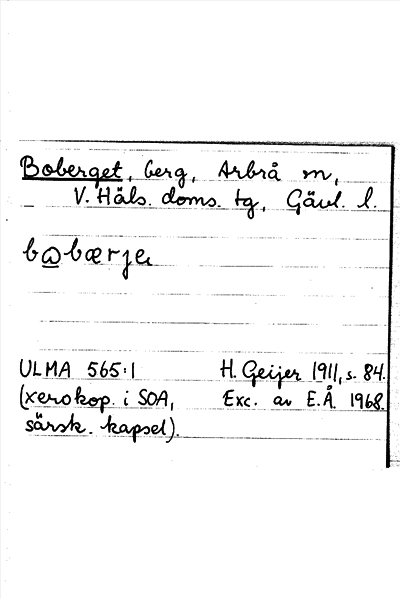 Boberget, berg, Arbrå sn,
V. Häls. doms. tg, Gävl. l.
ULMA 565:1 H. Geijer 1911, s. 84.
(xerokop. i SOA, Exc. av E.Å. 1968.
särsk. kapsel).